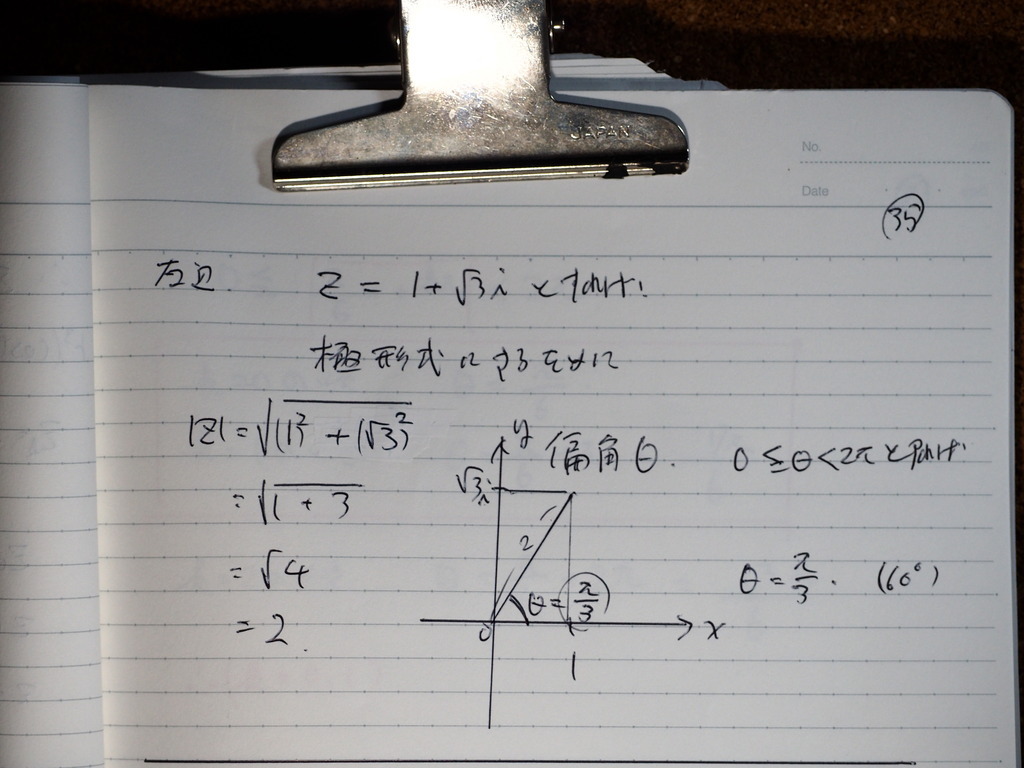 JAPAN
No.
Date
35
左辺 z = 1+√3i とすれば!
極形式にするために
|z| = √(1)² + (√3)²
= √1 + 3
= √4
= 2.
y
偏角θ. 0 ≦ θ < 2π とすれば!
√3i
2
θ = π/3
θ = π/3. (60°)
0
x
1